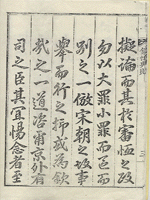 擬論而其於審恤之政
勿以大罪小罪而區而
別之一倣宋朝之故事
舉而行之抑或為欽
哉之一道咨爾京外有
司之臣其宜惕念者至